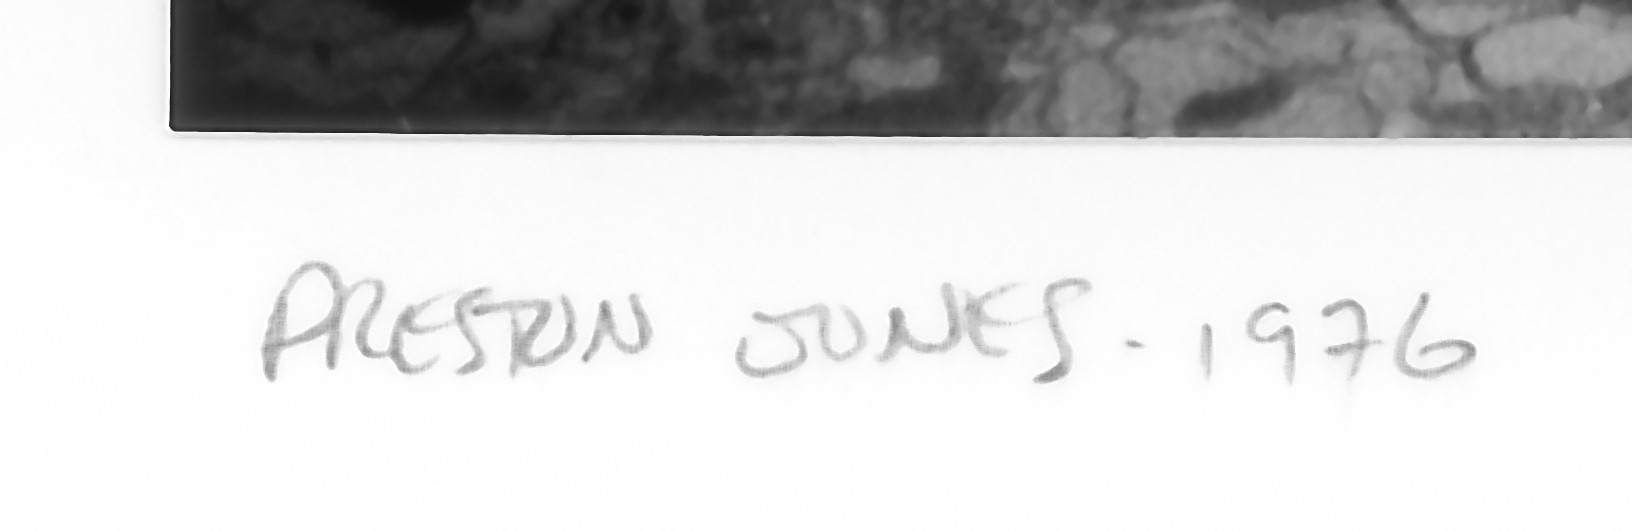 PRESTON JONES - 1976